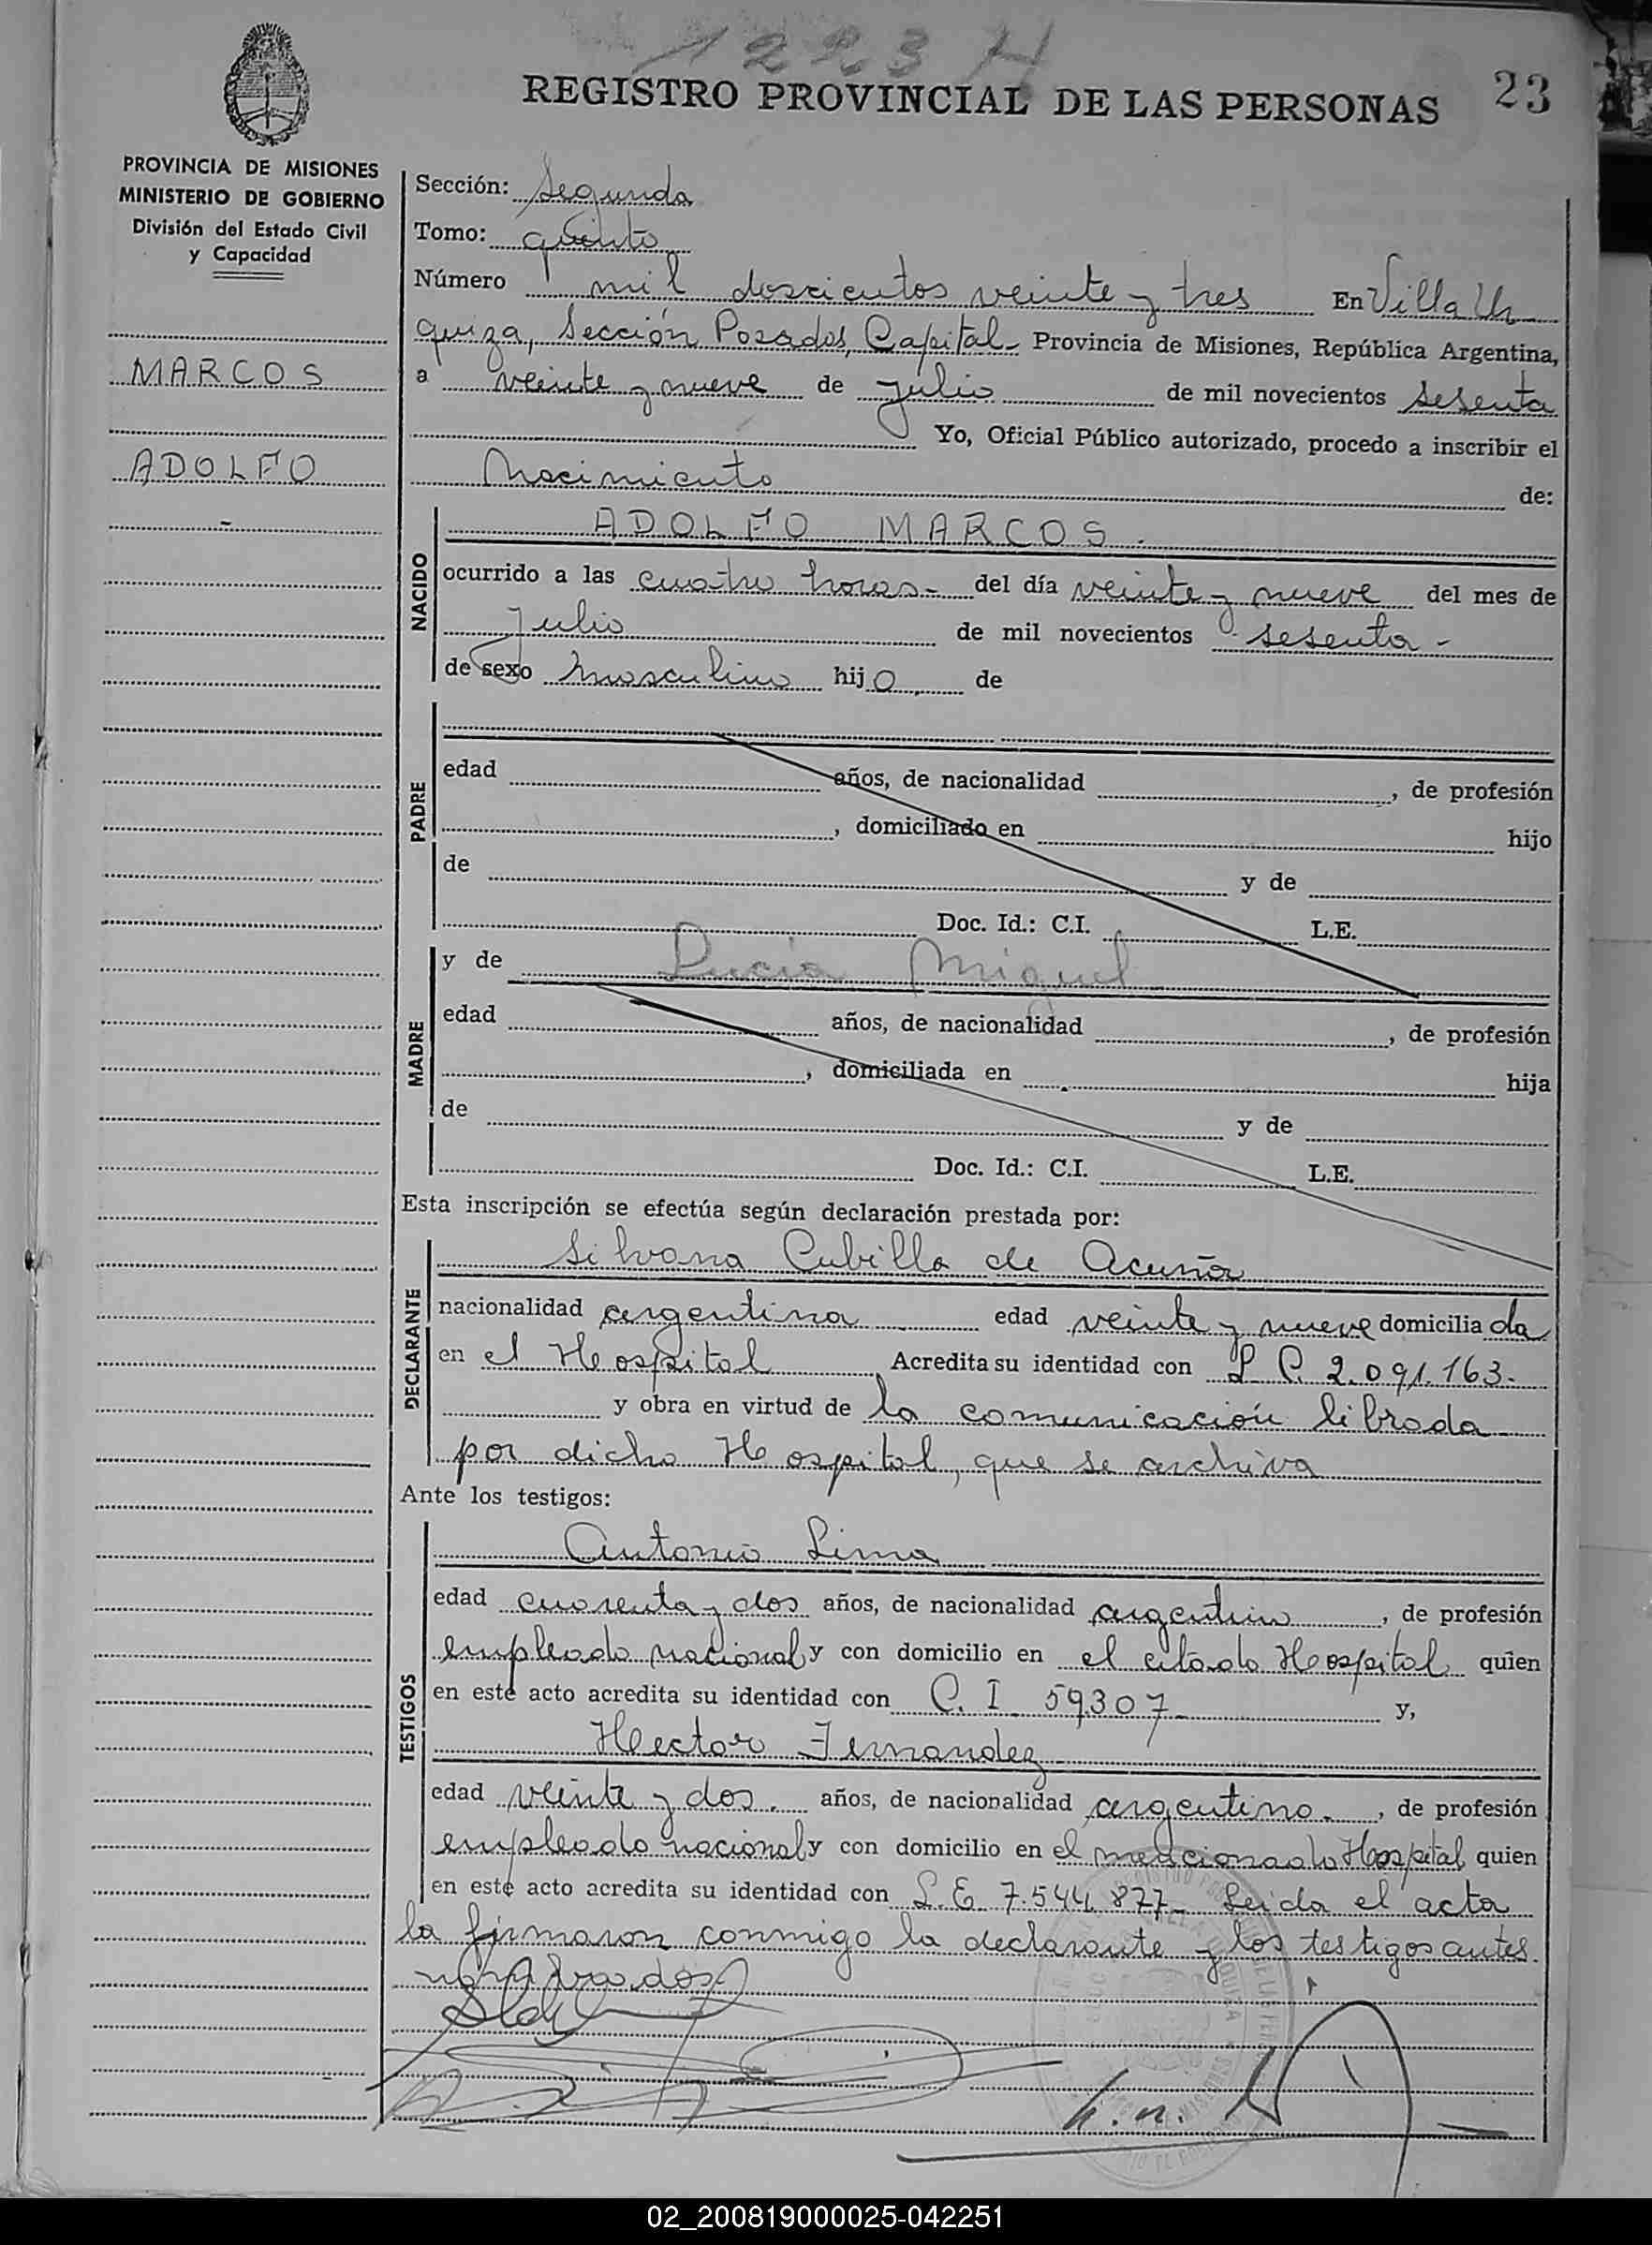 1223 H
REGISTRO PROVINCIAL DE LAS PERSONAS 23
PROVINCIA DE MISIONES
MINISTERIO DE GOBIERNO
División del Estado Civil
y Capacidad
MARCOS
ADOLFO
Sección: Segunda
Tomo: quinto
Número mil doscientos veinte y tres En Villa Ur
quiza, Sección Posadas, Capital- Provincia de Misiones, República Argentina,
a veinte y nueve de julio de mil novecientos sesenta
Yo, Oficial Público autorizado, procedo a inscribir el
Nacimiento de:
NACIDO
ADOLFO MARCOS.
ocurrido a las cuatro horas- del día veinte y nueve del mes de
Julio de mil novecientos sesenta-
de sexo masculino hijo de
PADRE
edad años, de nacionalidad , de profesión
, domiciliado en hijo
de y de
Doc. Id.: C.I. L.E.
MADRE
y de Lucia Miguel
edad años, de nacionalidad , de profesión
, domiciliada en hija
de y de
Doc. Id.: C.I. L.E.
Esta inscripción se efectúa según declaración prestada por:
DECLARANTE
Silvana Cubilla de Acuña
nacionalidad argentina edad veinte y nueve domiciliada
en el Hospital Acredita su identidad con L C. 2.091.163.
y obra en virtud de la comunicación librada
por dicho Hospital, que se archiva
Ante los testigos:
TESTIGOS
Antonio Lima
edad cuarenta y dos años, de nacionalidad argentino , de profesión
empleado nacional y con domicilio en el citado Hospital quien
en este acto acredita su identidad con C. I 59307 y,
Hector Fernandez
edad veinte y dos. años, de nacionalidad argentino. , de profesión
empleado nacional y con domicilio en el mencionado Hospital quien
en este acto acredita su identidad con L.E 7.544.877- Leida el acta
la firmaron conmigo la declarante y los testigos antes
nombrados
02_200819000025-042251